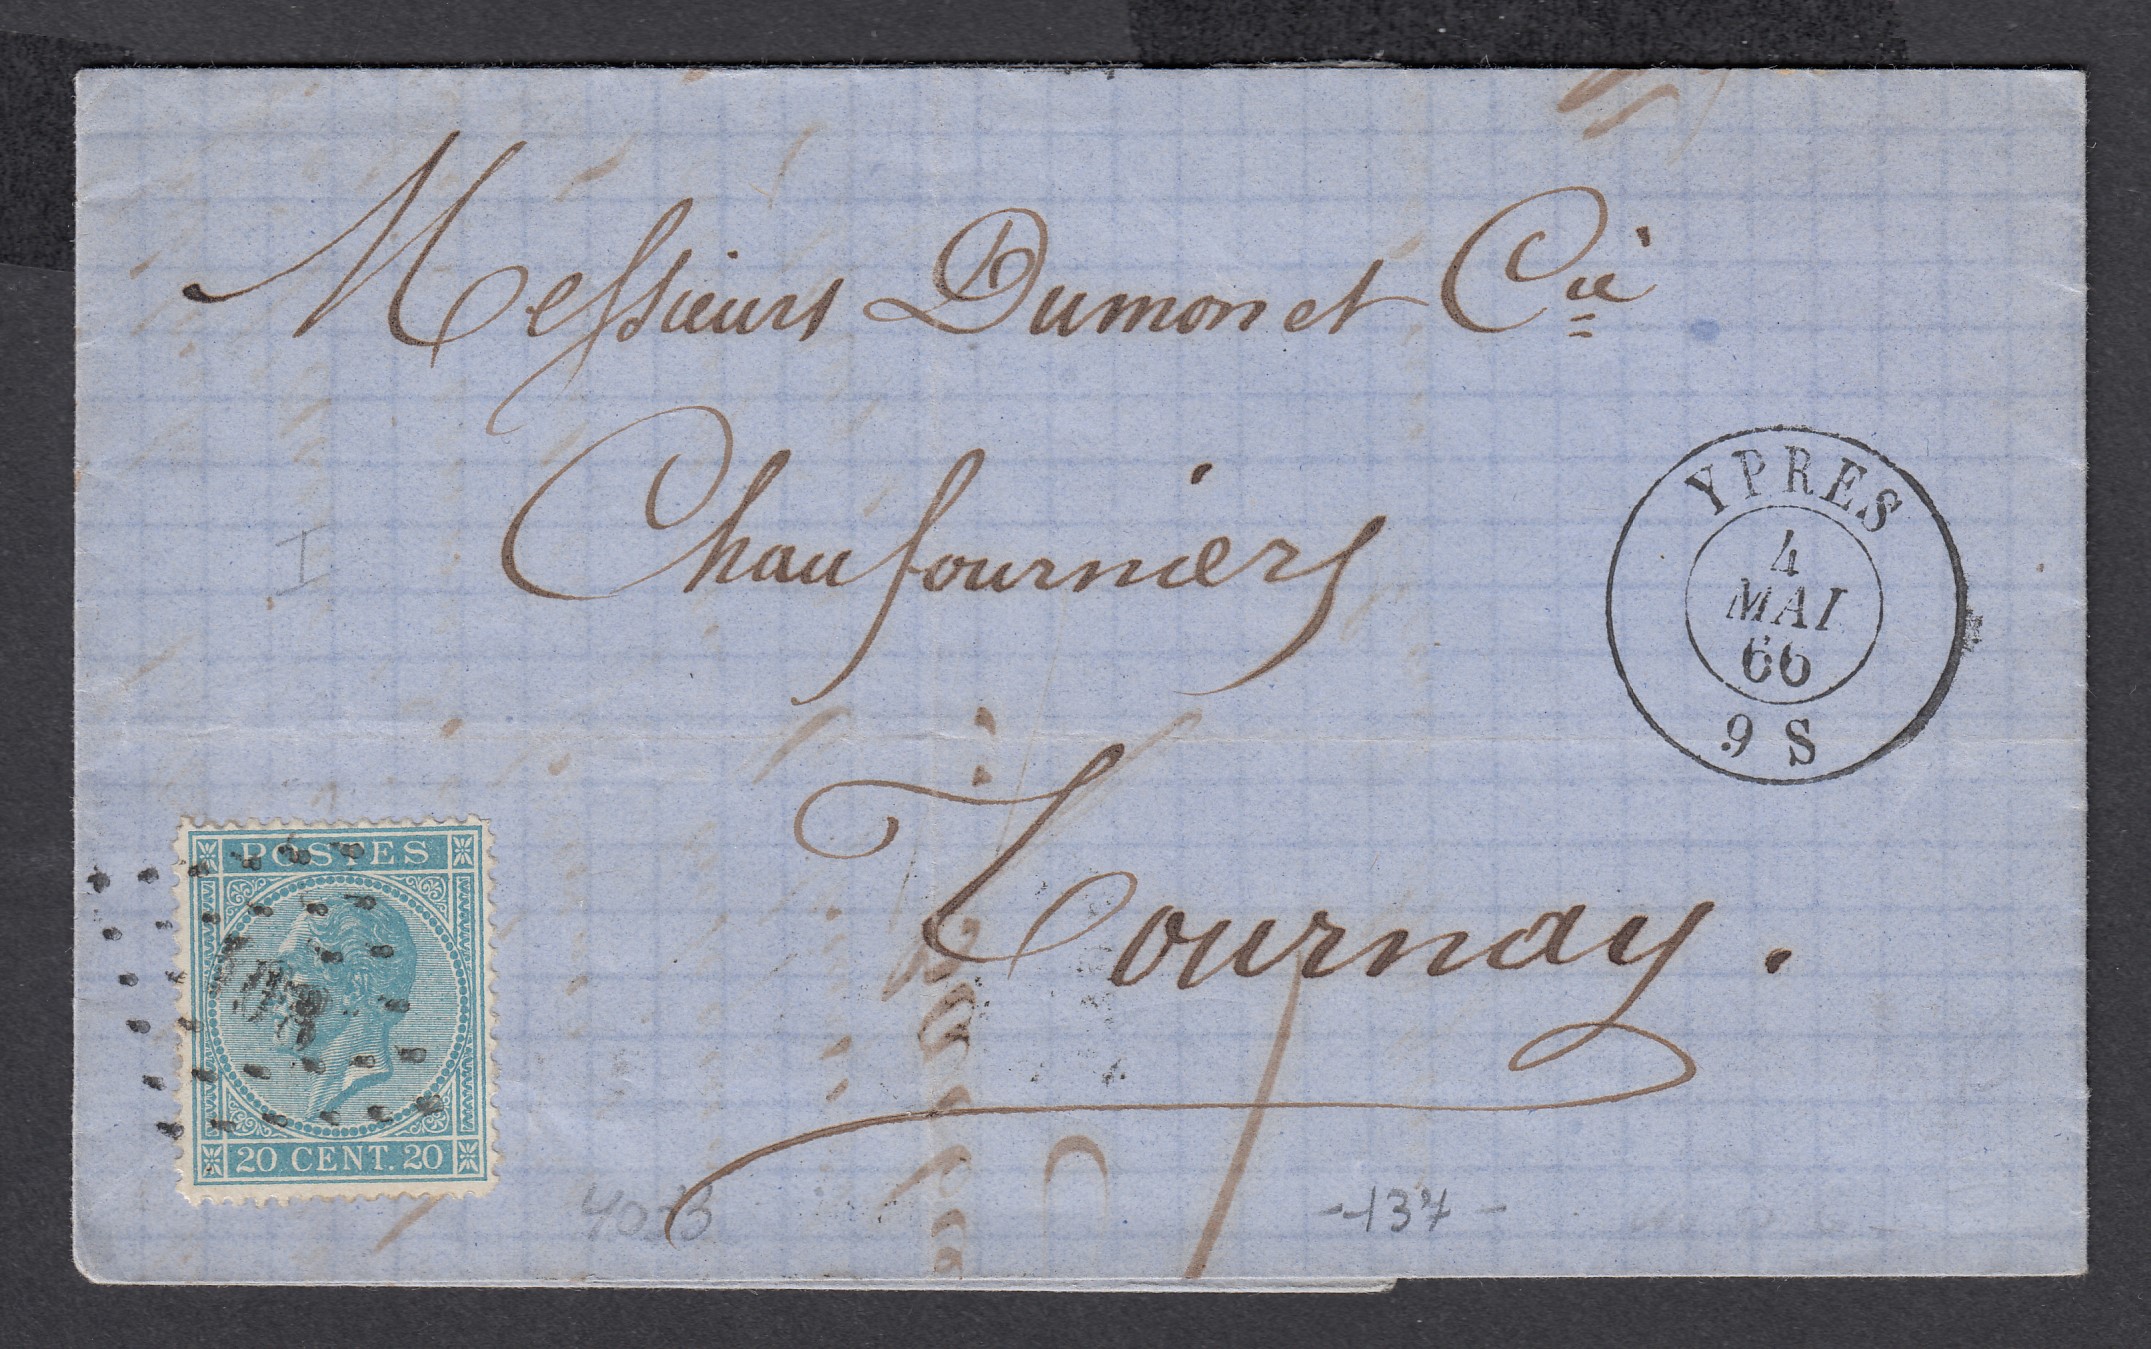 Messieurs Dumon et Cie
Chaufourniers
Tournay.
YPRES
4
MAI
66
9 S
POSTES
20 CENT. 20
-137-